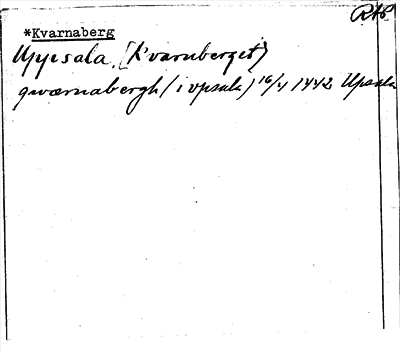 *Kvarnaberg
Uppsala. (Kvarnberget)
qwærnabergh (i vpsala) 16/4 1442 Upsala